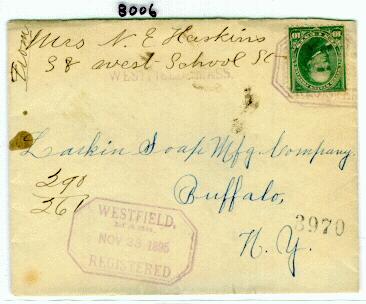 3006
From
Mrs N. E Haskins
38 west School St
WESTFIELD, MASS.
10 10
Larkin Soap Mfg. Company.
Buffalo,
N. Y.
290
261
3970
WESTFIELD,
MASS.
NOV 23 1895
REGISTERED